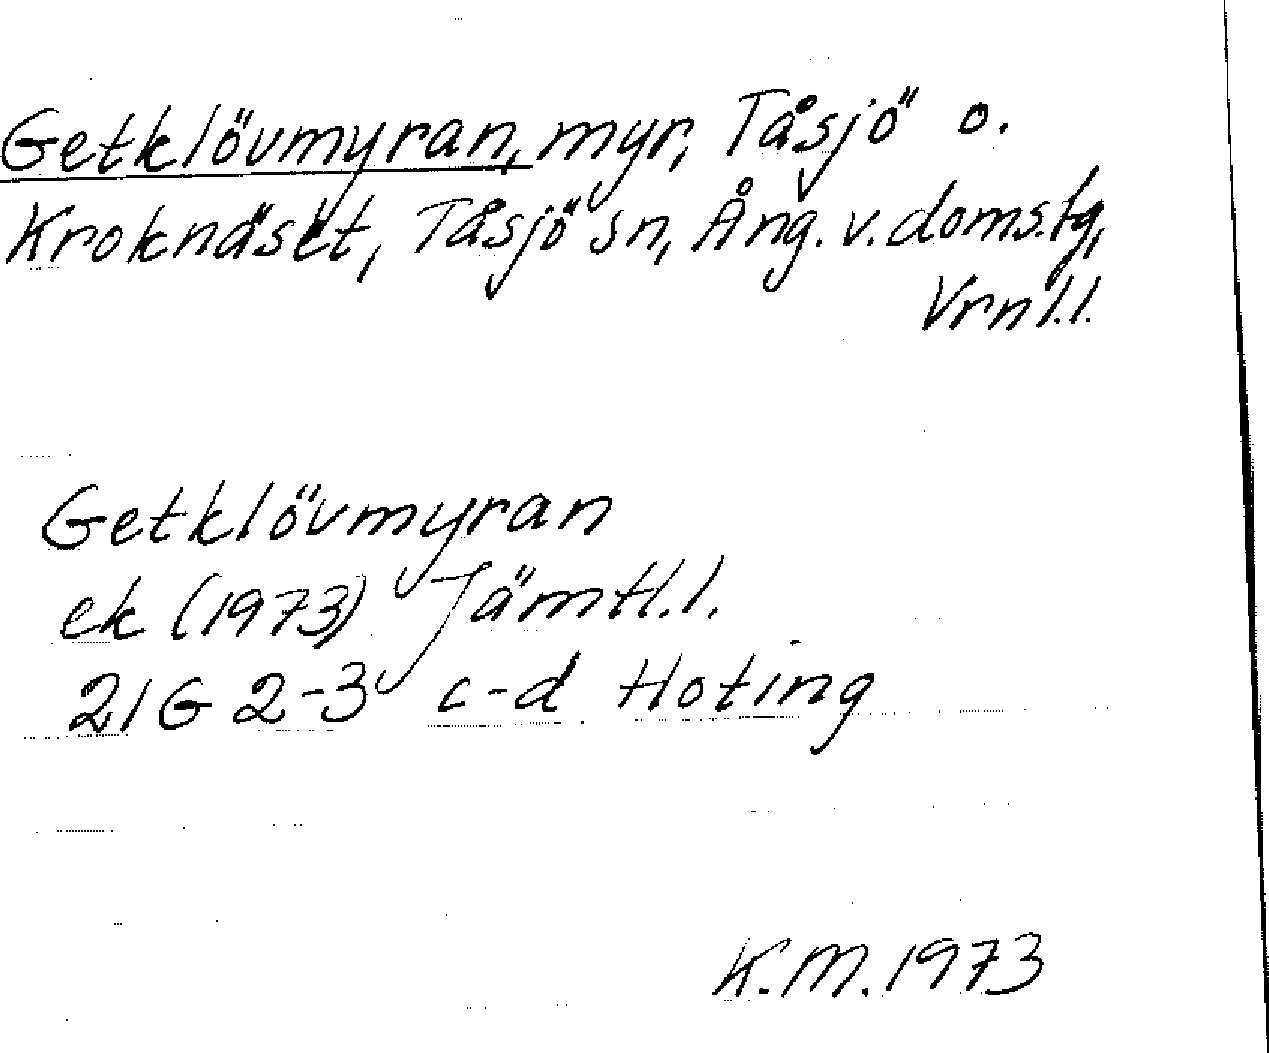 Getklövmyran, myr, Tåsjö o.
Kroknäset, Tåsjö sn, Ång. v. doms.fg,
Vrnl.l.
Getklövmyran
ek (1973) Jämtl.l.
21G 2-3 c-d Hoting
K.M. 1973